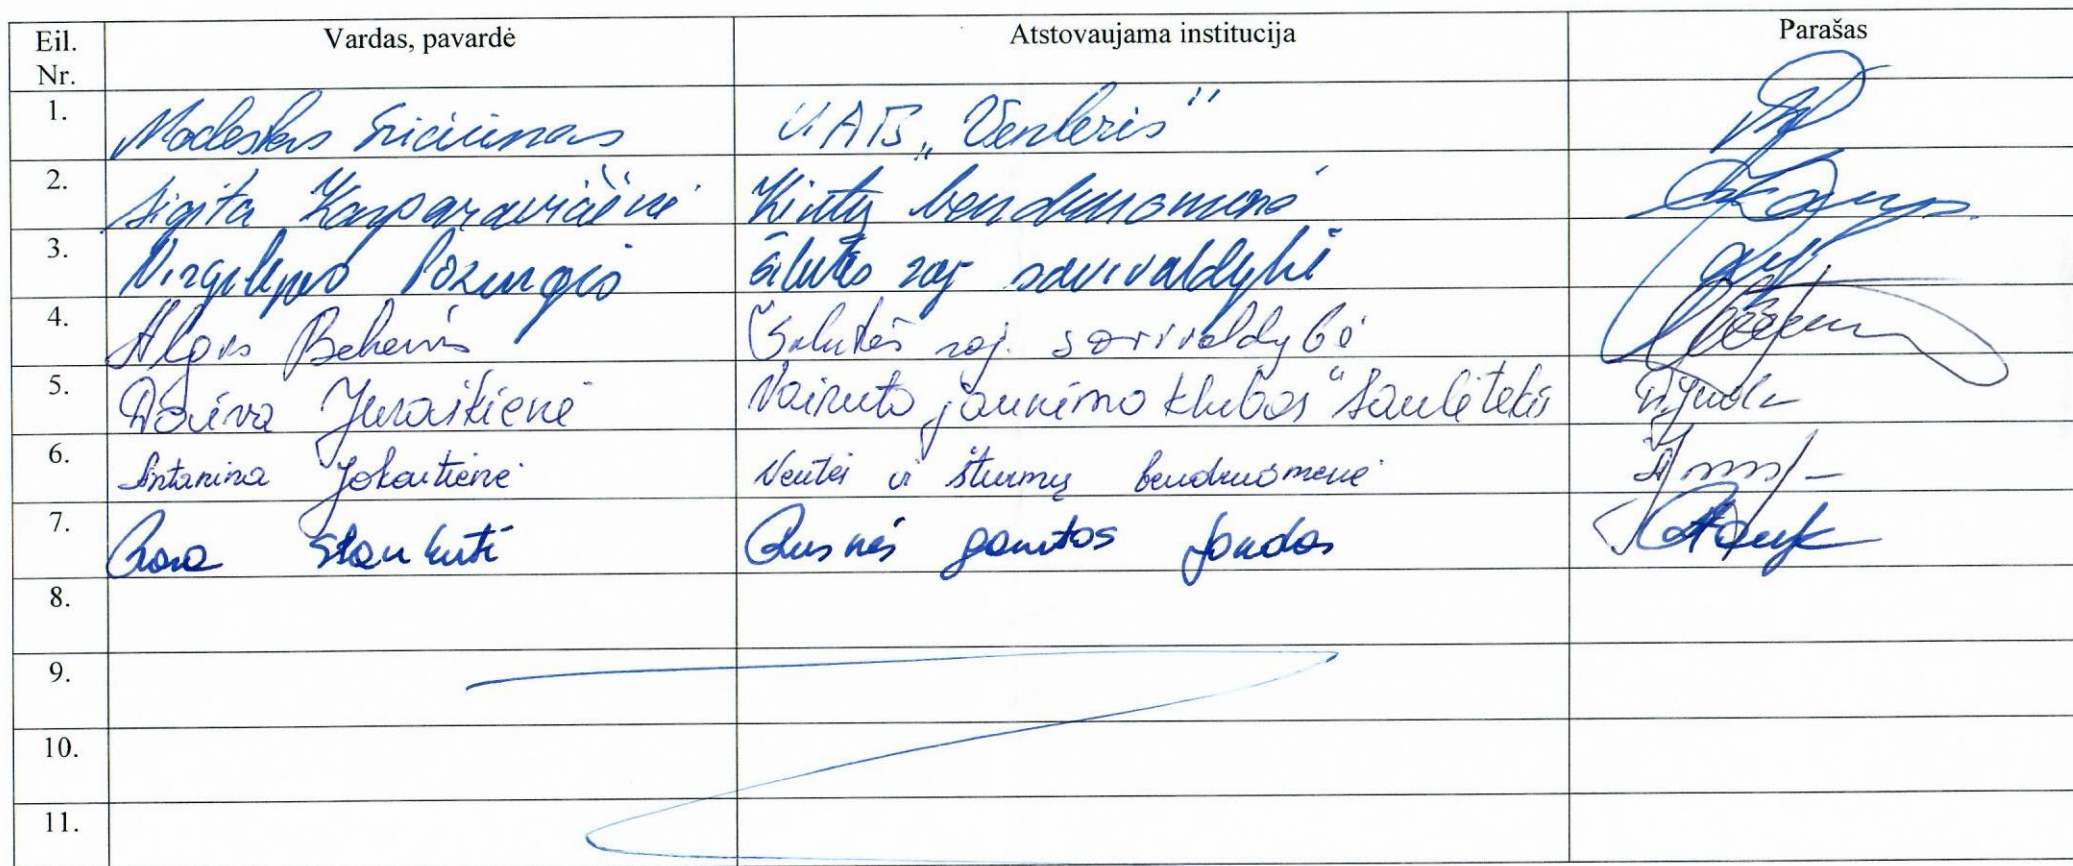 Eil. Nr. Vardas, pavardė Atstovaujama institucija Parašas
1. UAB „Venteris“
2. Sigita Kasparavičienė Kintų bendruomenė
3. Virgilijus Pozingis Šilutės raj savivaldybė
4. Algis Bekeris Šilutės raj. savivaldybė
5. Daiva Juraškienė Vainuto jaunimo klubas "Saulėtekis
6. Antanina Jokautienė Ventės ir Šturmų bendruomenė
7. Rasa Stankutė Rusnės gamtos fondas
8.
9.
10.
11.